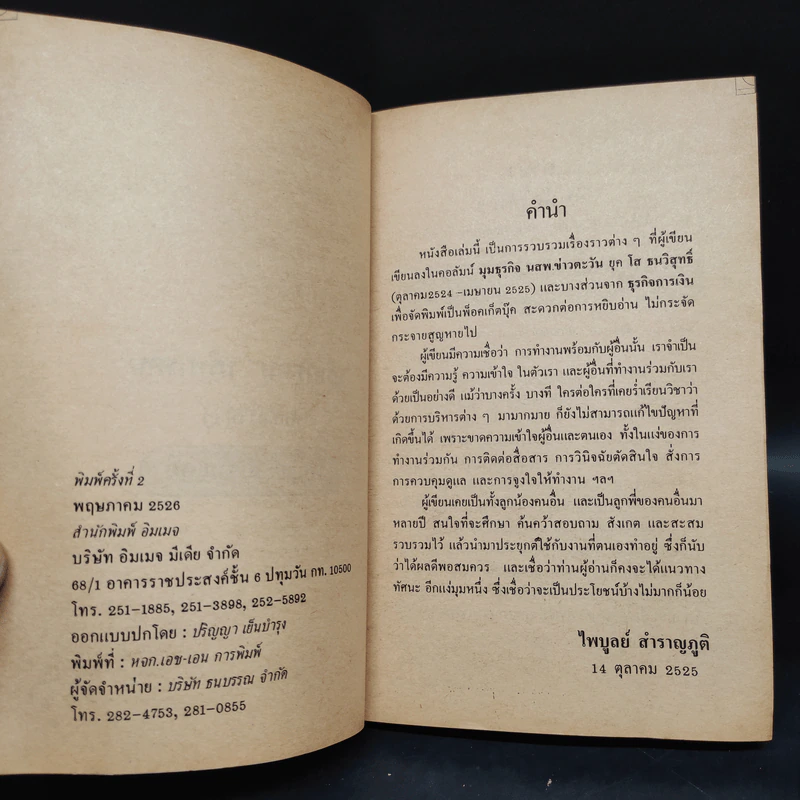 พิมพ์ครั้งที่ 2
พฤษภาคม 2526
สำนักพิมพ์ อิมเมจ
บริษัท อิมเมจ มีเดีย จำกัด
68/1 อาคารราชประสงค์ชั้น 6 ปทุมวัน กท. 10500
โทร. 251-1885, 251-3898, 252-5892
ออกแบบปกโดย : ปริญญา เย็นบำรุง
พิมพ์ที่ : หจก.เอช-เอน การพิมพ์
ผู้จัดจำหน่าย : บริษัท ธนบรรณ จำกัด
โทร. 282-4753, 281-0855
คำนำ
หนังสือเล่มนี้ เป็นการรวบรวมเรื่องราวต่าง ๆ ที่ผู้เขียน
เขียนลงในคอลัมน์ มุมธุรกิจ นสพ.ข่าวตะวัน ยุค โส ธนวิสุทธิ์
(ตุลาคม2524 -เมษายน 2525) และบางส่วนจาก ธุรกิจการเงิน
เพื่อจัดพิมพ์เป็นพ็อคเก็ตบุ๊ค สะดวกต่อการหยิบอ่าน ไม่กระจัด
กระจายสูญหายไป
ผู้เขียนมีความเชื่อว่า การทำงานพร้อมกับผู้อื่นนั้น เราจำเป็น
จะต้องมีความรู้ ความเข้าใจ ในตัวเรา และผู้อื่นที่ทำงานร่วมกับเรา
ด้วยเป็นอย่างดี แม้ว่าบางครั้ง บางที ใครต่อใครที่เคยร่ำเรียนวิชาว่า
ด้วยการบริหารต่าง ๆ มามากมาย ก็ยังไม่สามารถแก้ไขปัญหาที่
เกิดขึ้นได้ เพราะขาดความเข้าใจผู้อื่นและตนเอง ทั้งในแง่ของการ
ทำงานร่วมกัน การติดต่อสื่อสาร การวินิจฉัยตัดสินใจ สั่งการ
การควบคุมดูแล และการจูงใจให้ทำงาน ฯลฯ
ผู้เขียนเคยเป็นทั้งลูกน้องคนอื่น และเป็นลูกพี่ของคนอื่นมา
หลายปี สนใจที่จะศึกษา ค้นคว้าสอบถาม สังเกต และสะสม
รวบรวมไว้ แล้วนำมาประยุกต์ใช้กับงานที่ตนเองทำอยู่ ซึ่งก็นับ
ว่าได้ผลดีพอสมควร และเชื่อว่าท่านผู้อ่านก็คงจะได้แนวทาง
ทัศนะ อีกแง่มุมหนึ่ง ซึ่งเชื่อว่าจะเป็นประโยชน์บ้างไม่มากก็น้อย
ไพบูลย์ สำราญภูติ
14 ตุลาคม 2525